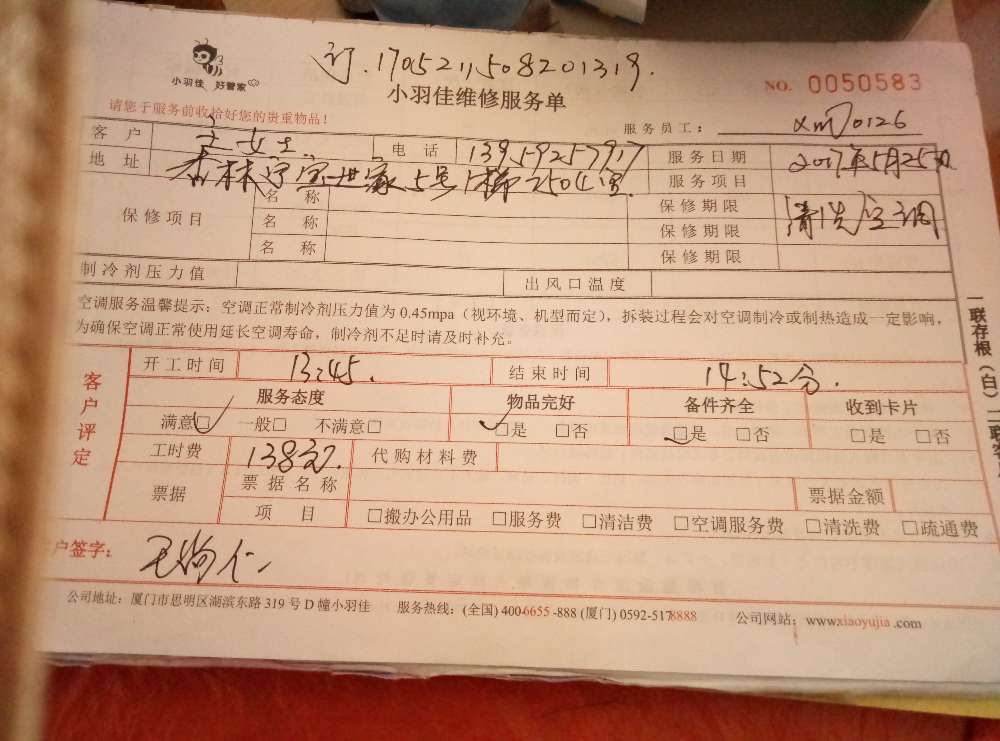 订.1705211508201319.
小羽佳 好管家
小羽佳维修服务单
NO. 0050583
请您于服务前收拾好您的贵重物品！
服务员工： xm0126
客户 女士 电话 13959257917 服务日期 2017年5月25日
地址 杏林宁宝世家5号1梯2504室 服务项目 清洗空调
保修项目 名称 保修期限
名称 保修期限
名称 保修期限
制冷剂压力值 出风口温度
空调服务温馨提示：空调正常制冷剂压力值为 0.45mpa（视环境、机型而定），拆装过程会对空调制冷或制热造成一定影响，
为确保空调正常使用延长空调寿命，制冷剂不足时请及时补充。
客户评定
开工时间 13:45. 结束时间 14:52分.
服务态度 物品完好 备件齐全 收到卡片
满意□ 一般□ 不满意□ □是 □否 □是 □否 □是 □否
工时费 138元. 代购材料费
票据 票据名称 票据金额
项目 □搬办公用品 □服务费 □清洁费 □空调服务费 □清洗费 □疏通费
户签字：
公司地址：厦门市思明区湖滨东路 319 号 D 幢小羽佳 服务热线：(全国) 400-6655-888 (厦门) 0592-5178888 公司网站：www.xiaoyujia.com
一联存根（白）二联客